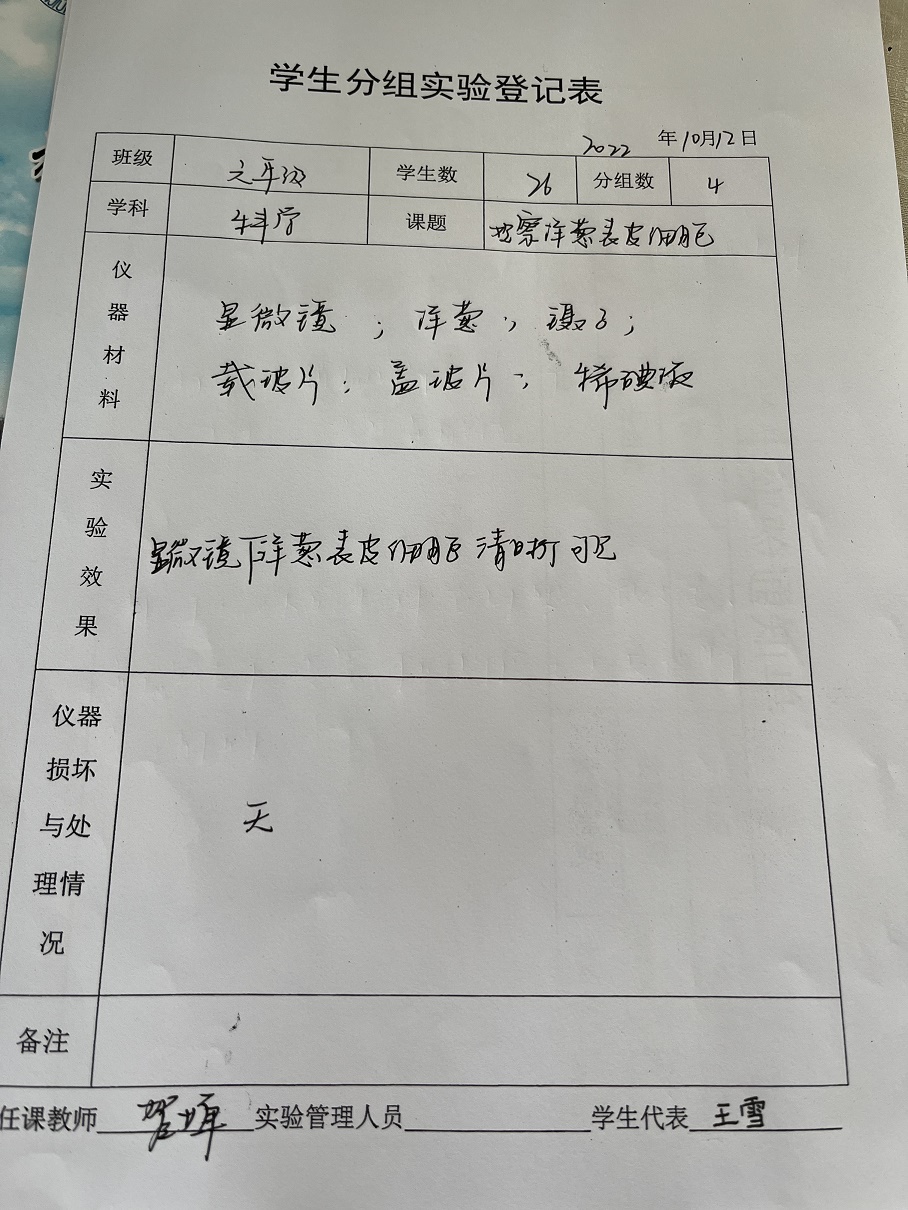 学生分组实验登记表
2022 年10月12日
班级 六年级 学生数 26 分组数 4
学科 科学 课题 观察洋葱表皮细胞
仪器材料
显微镜；洋葱；镊子；
载玻片；盖玻片；稀碘液
实验效果
显微镜下洋葱表皮细胞清晰可见
仪器损坏与处理情况
无
备注
任课教师 贺 实验管理人员 学生代表 王雪